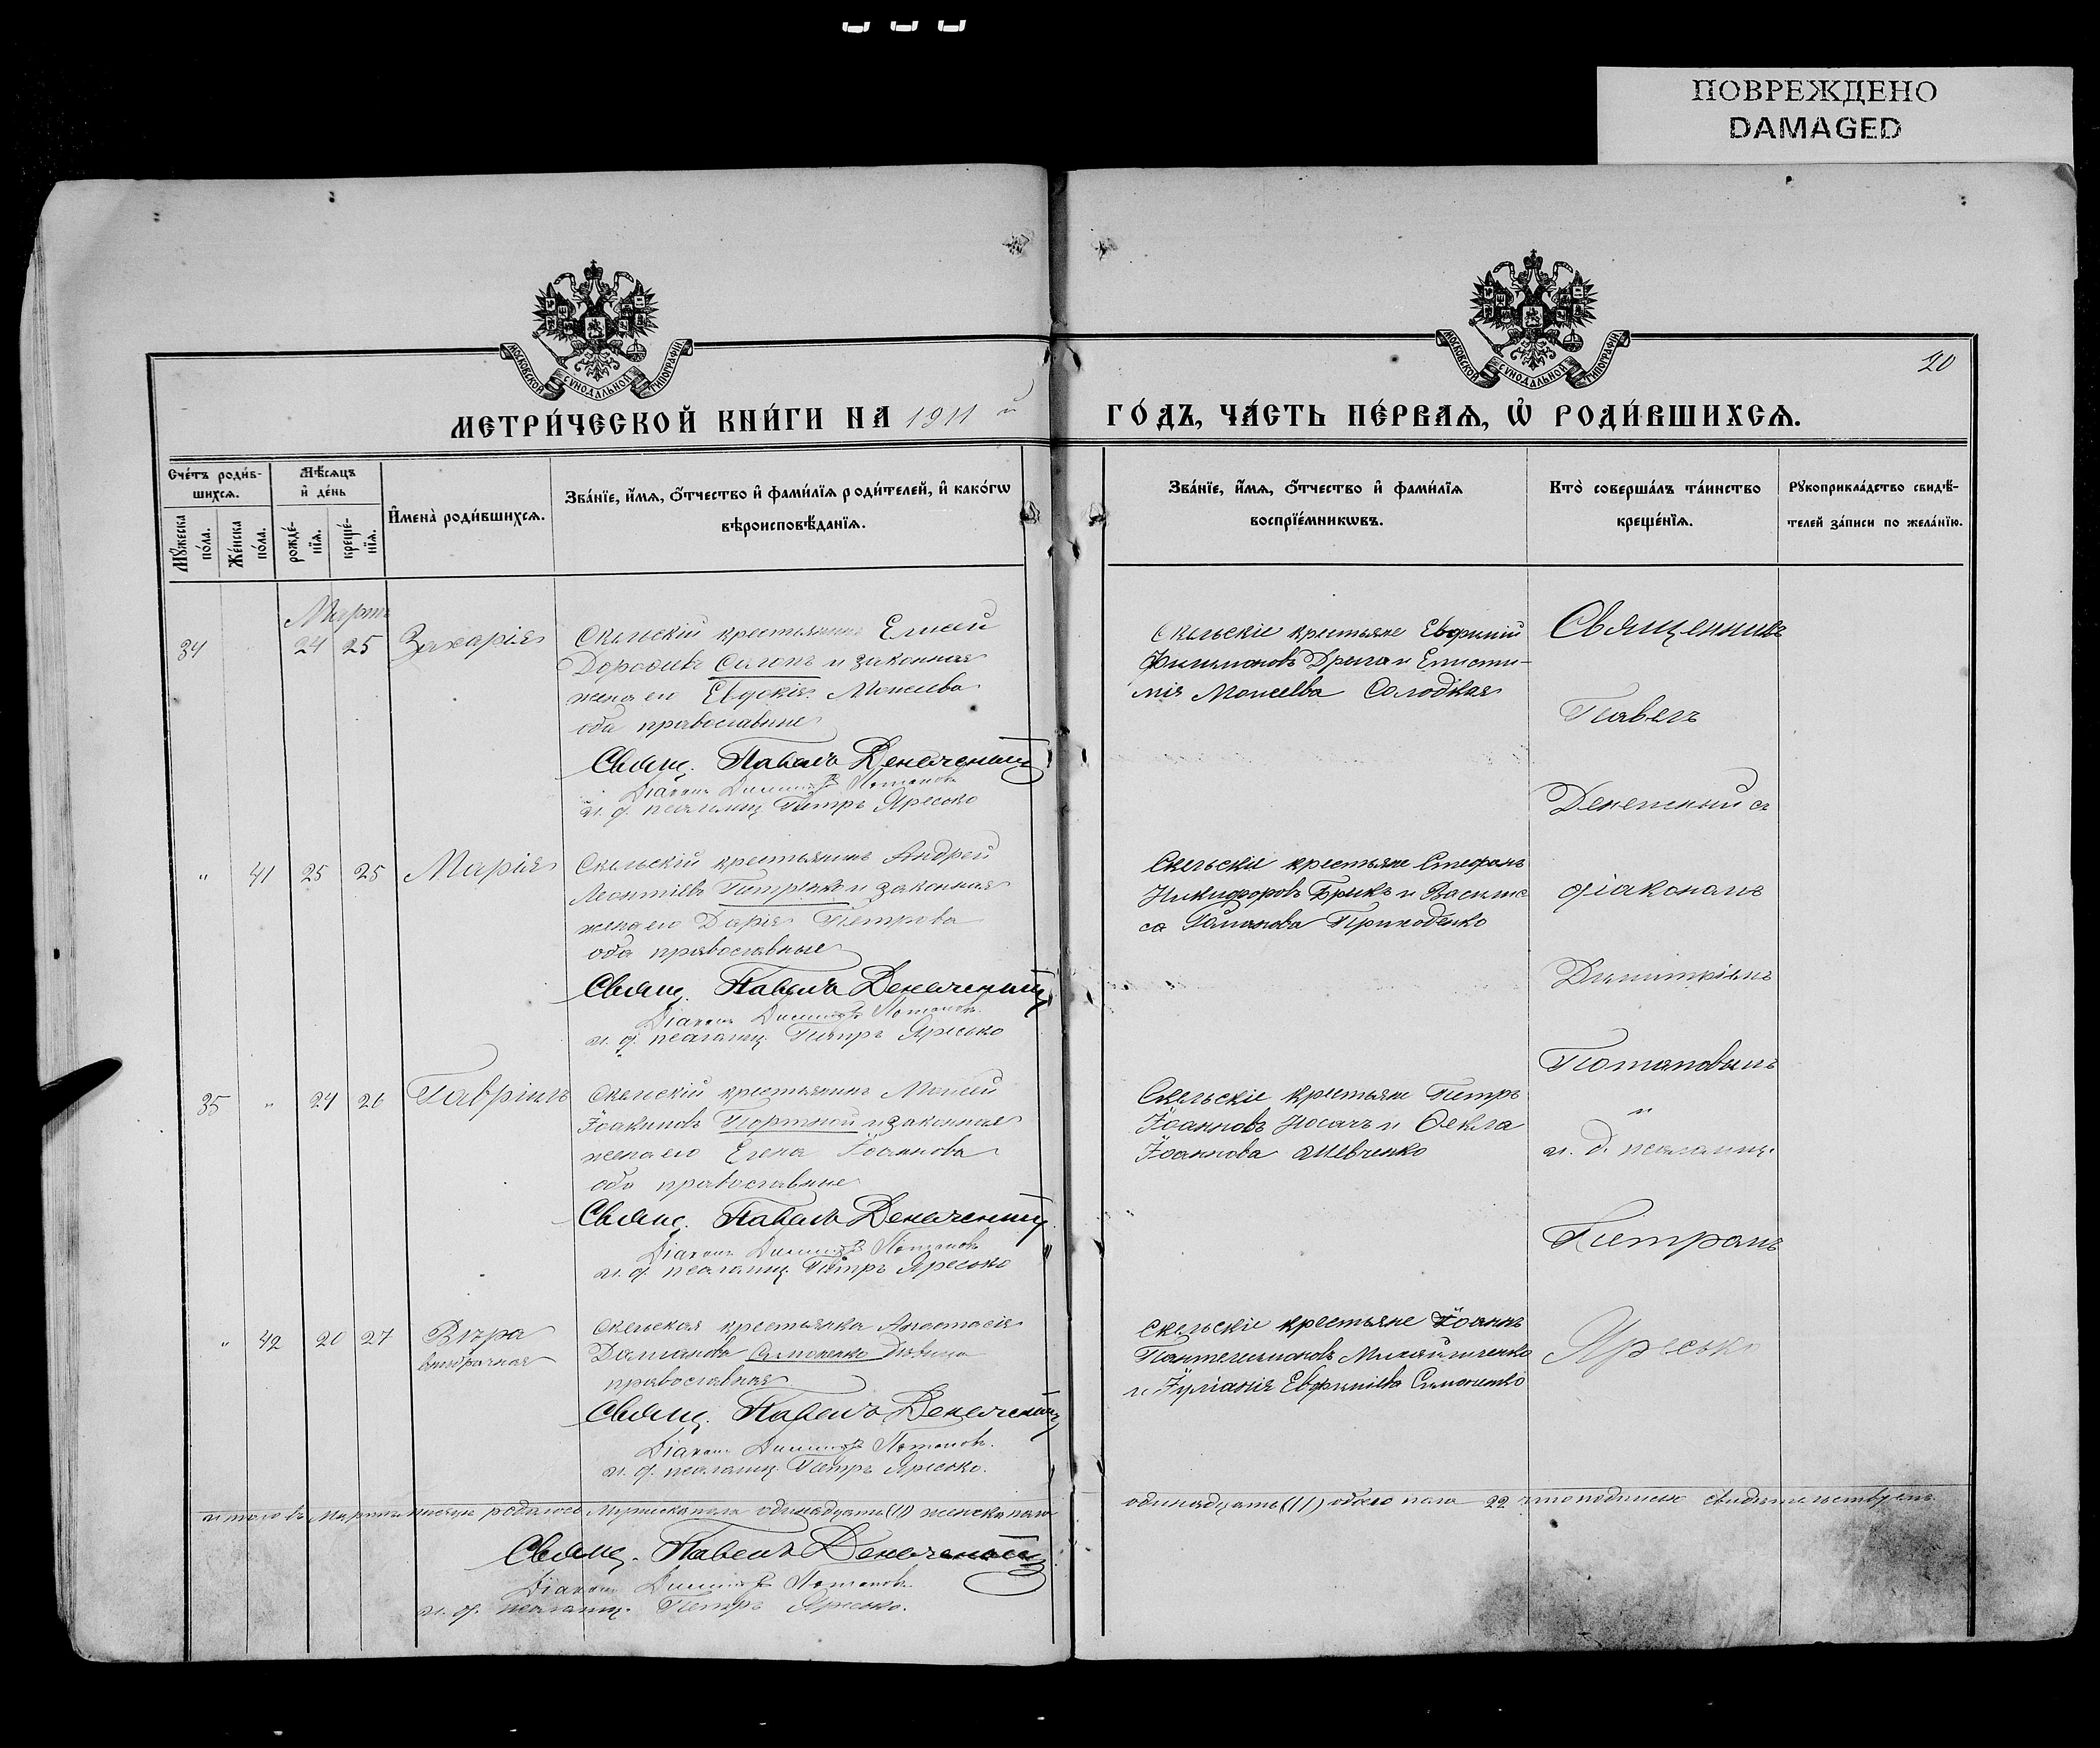 ПОВРЕЖДЕНО
DAMAGED
МОСКОВСКОЙ СѴНОДАЛЬНОЙ ТИПОГРАФІИ
МОСКОВСКОЙ СѴНОДАЛЬНОЙ ТИПОГРАФІИ
20
МЕТРИ́ЧЕСКОЙ КНИ́ГИ НА 1911 й
ГО́ДЪ, ЧА́СТЬ ПЕ́РВАѦ, Ѡ҆ РОДИ́ВШИХСѦ.
Сче́тъ роди́в-
шихсѧ.
Мꙋ́жеска по́ла.
Же́нска по́ла.
Мѣ́сѧцъ
и҆ де́нь
рожде́-
нїѧ.
креще́-
нїѧ.
И҆мена̀ роди́вшихсѧ.
Зва́нїе, и҆́мѧ, ѻ҆́тчество и҆ фами́лїѧ роди́телей, и҆ како́гѡ
вѣроисповѣ́данїѧ.
Зва́нїе, и҆́мѧ, ѻ҆́тчество и҆ фами́лїѧ
воспрїе́мникѡвъ.
Кто̀ соверша́лъ та́инство
креще́нїѧ.
Рꙋкоприкла́дство свидѣ́-
телей за́писи по жела́нїю.
Мартъ
34 24 25 Захарія
Скельскій крестьянинъ Елисей
Дороѳеевъ и законная
жена его Евдокія Моисеева
оба православные
Свящ. Павелъ Денежный
Діаконъ Димитрій Потаповъ
и. д. псаломщ. Петръ Яресько
Скельскіе крестьяне Евфимій
Филимоновъ Дрыга и Еписти-
мія Моисеева Солодкая
Священникъ
Павелъ
Денежный съ
діакономъ
Димитріемъ
Потаповымъ
и
и. д. псаломщ.
Петромъ
Яресько
" 41 25 25 Марія
Скельскій крестьянинъ Андрей
Леонтіевъ Петренко и законная
жена его Дарія Петрова
оба православные
Свящ. Павелъ Денежный
Діаконъ Димитрій Потаповъ
и. д. псаломщ. Петръ Яресько
Скельскіе крестьяне Стефанъ
Никифоровъ Брикъ и Васили-
са Романова Приходько
35 " 24 26 Гавріилъ
Скельскій крестьянинъ Моисей
Іоакимовъ Портной и законная
жена его Елена Іоаннова
оба православные
Свящ. Павелъ Денежный
Діаконъ Димитрій Потаповъ
и. д. псаломщ. Петръ Яресько
Скельскіе крестьяне Петръ
Іоанновъ Носачъ и Ѳекла
Іоаннова Шевченко
" 42 20 27 Вѣра
внебрачная
Скельская крестьянка Анастасія
Даміанова Симоненко дѣвица
православная
Свящ. Павелъ Денежный
Діаконъ Димитрій Потаповъ.
и. д. псаломщ. Петръ Яресько.
Скельскіе крестьяне Іоаннъ
Пантелеимоновъ Михайличенко
и Іуліанія Евфиміева Симоненко
итого въ Мартѣ мѣсяцѣ родилось Мужеска пола одинадцать (11) женска пола
одинадцать (11) обоего пола 22 что подписью свидѣтельствуемъ.
Свящ. Павелъ Денежный
Діаконъ Димитрій Потаповъ
и. д. псаломщ. Петръ Яресько.